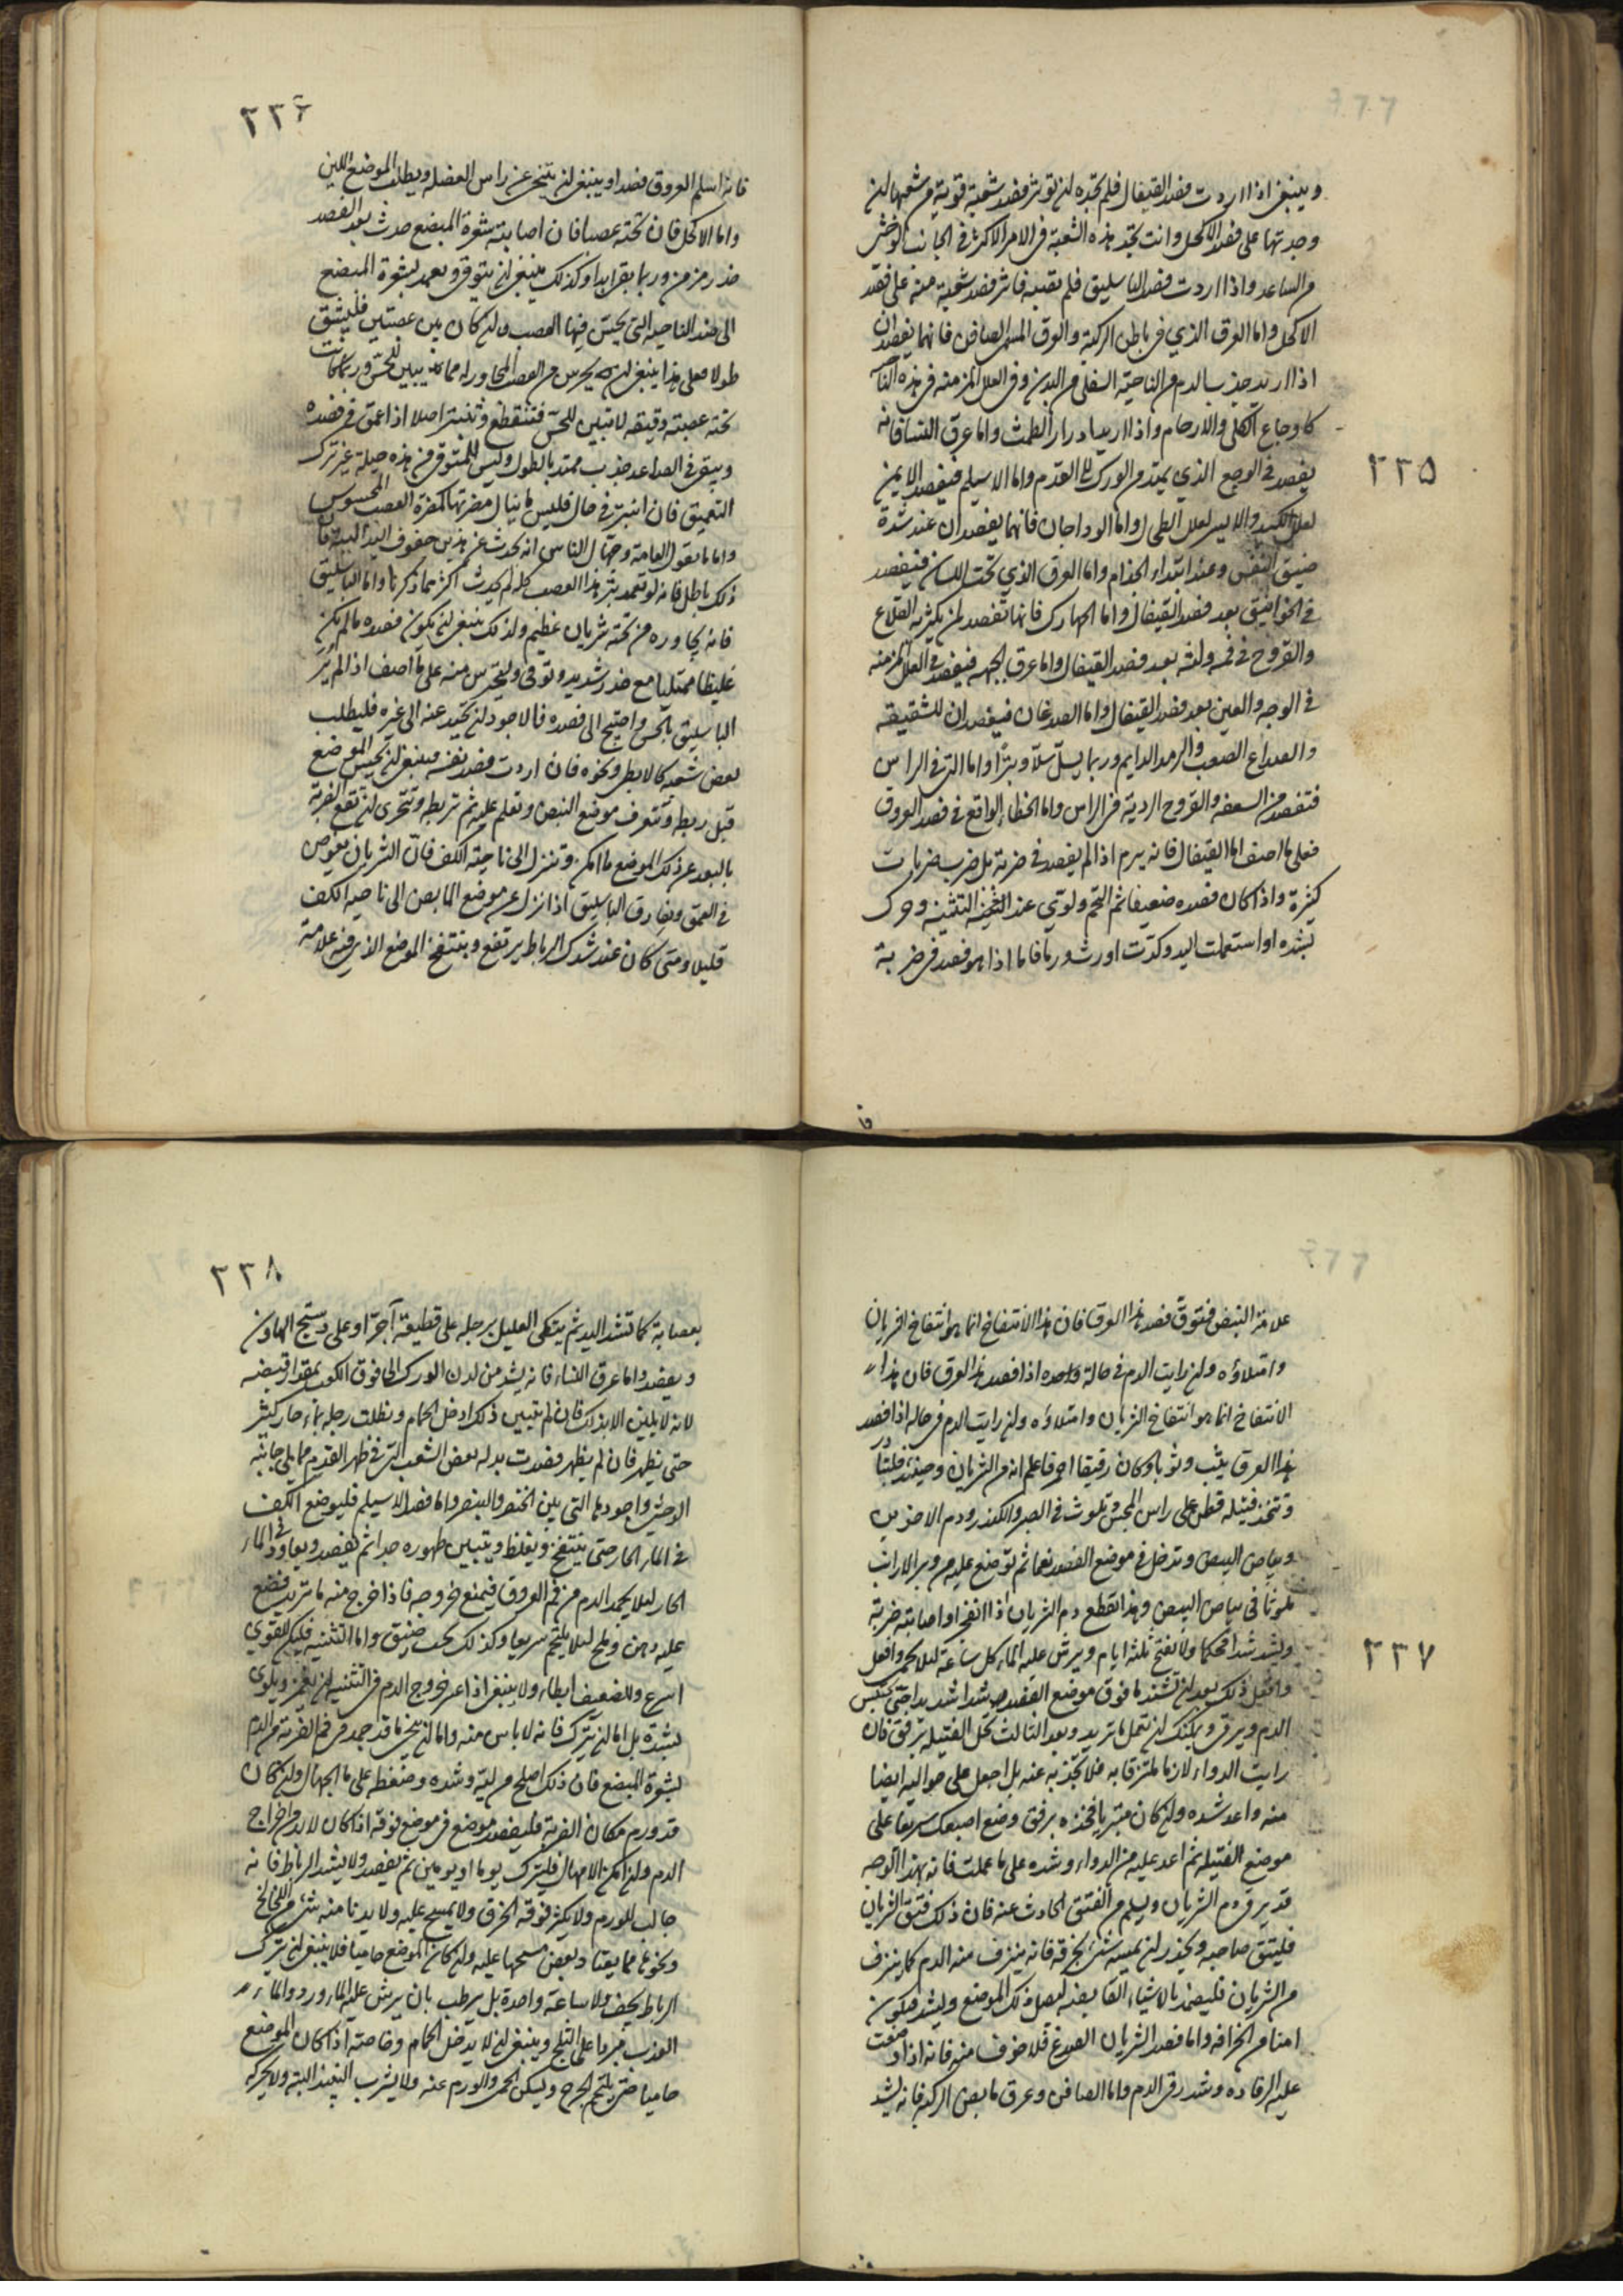 ٢٣٥
وينبغي اذا اردت فصد القيفال فلم تجده لن توثر فصد شعبة قوية من شعبها لن
وجدتها على فصد الاكحل وانت تجد هذه الشعبة في الامر الاكثر في الجانب الوحشي
من الساعد واذا اردت فصد الباسليق فلم تصبه فاثر فصد شعبة منه على فصد
الاكحل واما العرق الذي في باطن الركبة والعرق المسمى الصافن فانهما يفصدان
اذا اريد جذب الدم من الناحية السفلى من البدن وفي العلل المزمنه في هذه
كاوجاع الكلى والارحام واذا اريد ادرار الطمث واما عرق النسا فانه
يفصد في الوجع الذي يمتد من الورك الى القدم واما الاسيلم فيفصد الايمن
لعلل الكبد والايسر لعلل الطحال واما الوداجان فانهما يفصدان عند شدة
ضيق النفس وعند ابتداء الجذام واما العرق الذي تحت اللسان فيفصد
في الخوانيق بعد فصد القيفال واما الجهارك فانها تفصد لمن يكثر به القلاع
والقروح في فمه ولثته بعد فصد القيفال واما عرق الجبهه فيفصد في العلل المزمنه
في الوجه والعين بعد فصد القيفال واما الصدغان فيفصدان للشقيقه
والصداع الصعب والرمد الدايم وربما يسل سلا وبترا واما التي في الراس
فتفصد من السعفه والقروح الردية في الراس واما الخطاء الواقع في فصد العروق
فعلى ما اصف اما القيفال فانه يرم اذا لم يفصد في ضربة بل ضرب ضربات
كثيرة واذا كان فصده ضعيفا ثم التحم ولوي عند التثنيه وحرك
بشده او استعملت اليد وكدت اورث ورما فاما اذا هو فصد في ضربة
٢٣٦
فانه اسلم العروق فصدا وينبغي لن يتنحى عن راس العضله ويطلب الموضع اللين
واما الاكحل فان تحته عصبا فان اصابته شفرة المبضع حدث بعد الفصد
خدر مزمن وربما بقي ابدا وكذلك ينبغي لن يتوقى ويعمد بشفرة المبضع
الى ضد الناحيه التي يحس فيها العصب وان كان بين عصبتين فليشق
طولا فعلى هذا ينبغي لن يحترس من العصب المجاور له مما يتبين للحس وربما كانت
تحته عصبة دقيقه لا تتبين للحس فتنقطع وتنبتر اصلا اذا اعمق في فصده
ويبقى في الساعد جذب ممتد بالطول وليس للمتوقي من هذه حيلة غير ترك
التعميق فان انبترت في حال فليس ينال مضرتها كمضرة العصب المحسوس
واما ما يقول العامة وجهال الناس انه يحدث عن هذين جفوف اليد البتة فان
ذلك باطل فانه لو تعمد بتر هذا العصب كله لم يحدث اكثر مما ذكرنا واما الباسليق
فانه يجاوره من تحته شريان عظيم ولذلك ينبغي لن يكون فصده ما لم يكن
غليظا ممتليا مع حذر شديد وتوقي وليحترس منه على ما اصف اذا لم ير
الباسليق بالحس واحتيج الى فصده فالاجود لن تحيد عنه الى غيره فليطلب
بعض شعبه كالابطي ونحوه فان اردت فصده نفسه فينبغي لن تحبس الموضع
قبل ربطه وتتعرف موضع النبض وتعلم عليه ثم تربطه وتتحرى لن تقع الضربة
بالبعد عن ذلك الموضع ما امكن وتنزل الى ناحية الكف فان الشريان يغوص
في العمق ويفارق الباسليق اذا نزل عن موضع المابض الى ناحيه الكف
قليلا ومتى كان عند شدك الرباط يرتفع وينتفخ الموضع الذي فيه علامة
٢٣٧
علامة النبض فتوق فصد هذا العرق فان هذا الانتفاخ انما هو انتفاخ الشريان
وامتلاؤه ولن رايت الدم في حالة واحده اذا فصد هذا العرق فان هذا
الانتفاخ انما هو انتفاخ الشريان وامتلاؤه ولن رايت الدم في حاله اذا فصد
هذا العرق يثب وثوبا وكان رقيقا احمر فاعلم انه من الشريان وحينئذ فلتبادر
وتتخذ فتيله قطن على راس المجس وتلوث في الصبر والكندر ودم الاخوين
وبياض البيض وتدخل في موضع الفصد نعما ثم توضع عليه من وبر الارانب
ملوثا في بياض البيض وهذا يقطع دم الشريان اذا انفجر او اصابته ضربة
وليشد شدا محكما ولا يفتح ثلثه ايام ويرش عليه الماء كل ساعة لئلا يحمى وافعل
وافعل ذلك بعد لن تشد ما فوق موضع الفصد شدا شديدا حتى يحتبس
الدم ويرق ويمكنك لن تعمل ما تريد وبعد الثالث تحل الفتيله برفق فان
رايت الدواء لازما ملتزقا به فلا تجذبه عنه بل اجعل على حواليه ايضا
منه واعد شده ولن كان متبريا فخذه برفق وضع اصبعك سريعا على
موضع الفتيله ثم اعد عليه من الدواء وشده على ما عملت فانه بهذا الوجه
قد يرقى دم الشريان ويسلم من الفتق الحادث عنه فان ذلك فتق الشريان
فليتق صاحبه ويحذر لن يمسه شئ بخرقه فانه ينزف منه الدم كما ينزف
من الشريان فليضمد بالاشياء القابضه ليصلب ذلك الموضع وليشد فيكون
امنا من انخراقه واما فصد الشريان الصدغ فلا خوف منه فانه اذا وضعت
عليه الرفاده وشد رقى الدم واما الصافن وعرق مابض الركبه فانه يشد
٢٣٨
بعصابة كما تشد اليد ثم يتكي العليل برجله على قطيفة آجرة او على دستج الهاون
ويفصد واما عرق النساء فانه يشد من لدن الورك الى فوق الكعب بمقدار قبضه
لانه لا يتبين الا بذلك فان لم يتبين ذلك ادخل الحمام ونطلت رجله بماء حار كثير
حتى يظهر فان لم يظهر فصدت بدله بعض الشعب التي في ظهر القدم مما يلي جانبه
الوحشي واجودها التي بين الخنصر والبنصر واما فصد الاسيلم فليوضع الكف
في الماء الحار حتى ينتفخ ويغلظ ويتبين ظهوره جدا ثم يفصد ويعاود في الماء
الحار ليلا يجمد الدم من فم العروق فيمنع خروجه فاذا خرج منه ما تريد فضع
عليه دهن وملح ليلا يلتحم سريعا وكذلك يجب ضيق واما التثنيه فليكن للقوي
اسرع وللضعيف ابطاء ولا ينبغي اذا عسر خروج الدم في التثنيه لن يغمز ويلوى
بشدة بل اما لن يترك فانه لا باس منه واما لن ينحى ما قد جمد في فم الضربة من الدم
بشفرة المبضع فان ذلك اصلح من ليه وشده وضغطه على ما الجهال ولن كان
قد ورم مكان الضربة فليفصد موضع في موضع فوقه اذا كان لا بد من اخراج
الدم ولن امكن الامهال فليترك يوما او يومين ثم يفصد ولا يشد الرباط فانه
جالب للورم ولا يكثر فوقه الخرق ولا يمسح عليه ولا يدنا منه شئ من اللخالخ
ونحوها مما يعتاد بعض مسحها عليه ولن كان الموضع حاميا فلا ينبغي لن يترك
الرباط يجف ولا ساعة واحدة بل يرطب بان يرش عليه الماء ورد والماء
العذب مبردا على الثلج وينبغي لن لا يدخل الحمام وخاصته اذا كان الموضع
حاميا حتى يلتحم الجرح ويسكن الحمى والورم عنه ولا يشرب النبيذ البته ولا يحركه